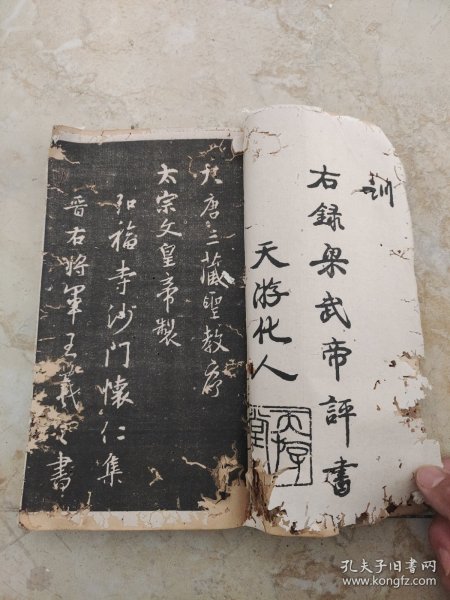 訓
右録梁武帝評書
天游化人
天游
堂
大唐三藏聖教序
太宗文皇帝製
弘福寺沙門懷仁集
晉右將軍王羲之書
孔夫子旧书网
www.kongfz.com